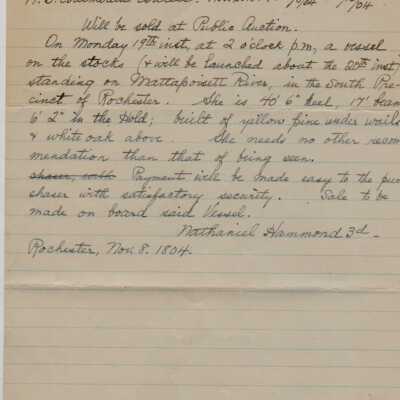 Will be sold at Public Auction.
On Monday 19th inst, at 2 o'clock p.m, a vessel
on the stocks (& will be launched about the 22nd inst)
standing on Mattapoisett River, in the South Pre-
cinct of Rochester. She is 40' 6" keel, 17' beam
6' 2" in the Hold; built of yellow pine under wails
& white oak above. She needs no other recom
mendation than that of being seen.
chaser, with Payment will be made easy to the pur
chaser with satisfactory security. Sale to be
made on board said Vessel.
Nathaniel Hammond 3d-
Rochester, Nov. 8. 1804.